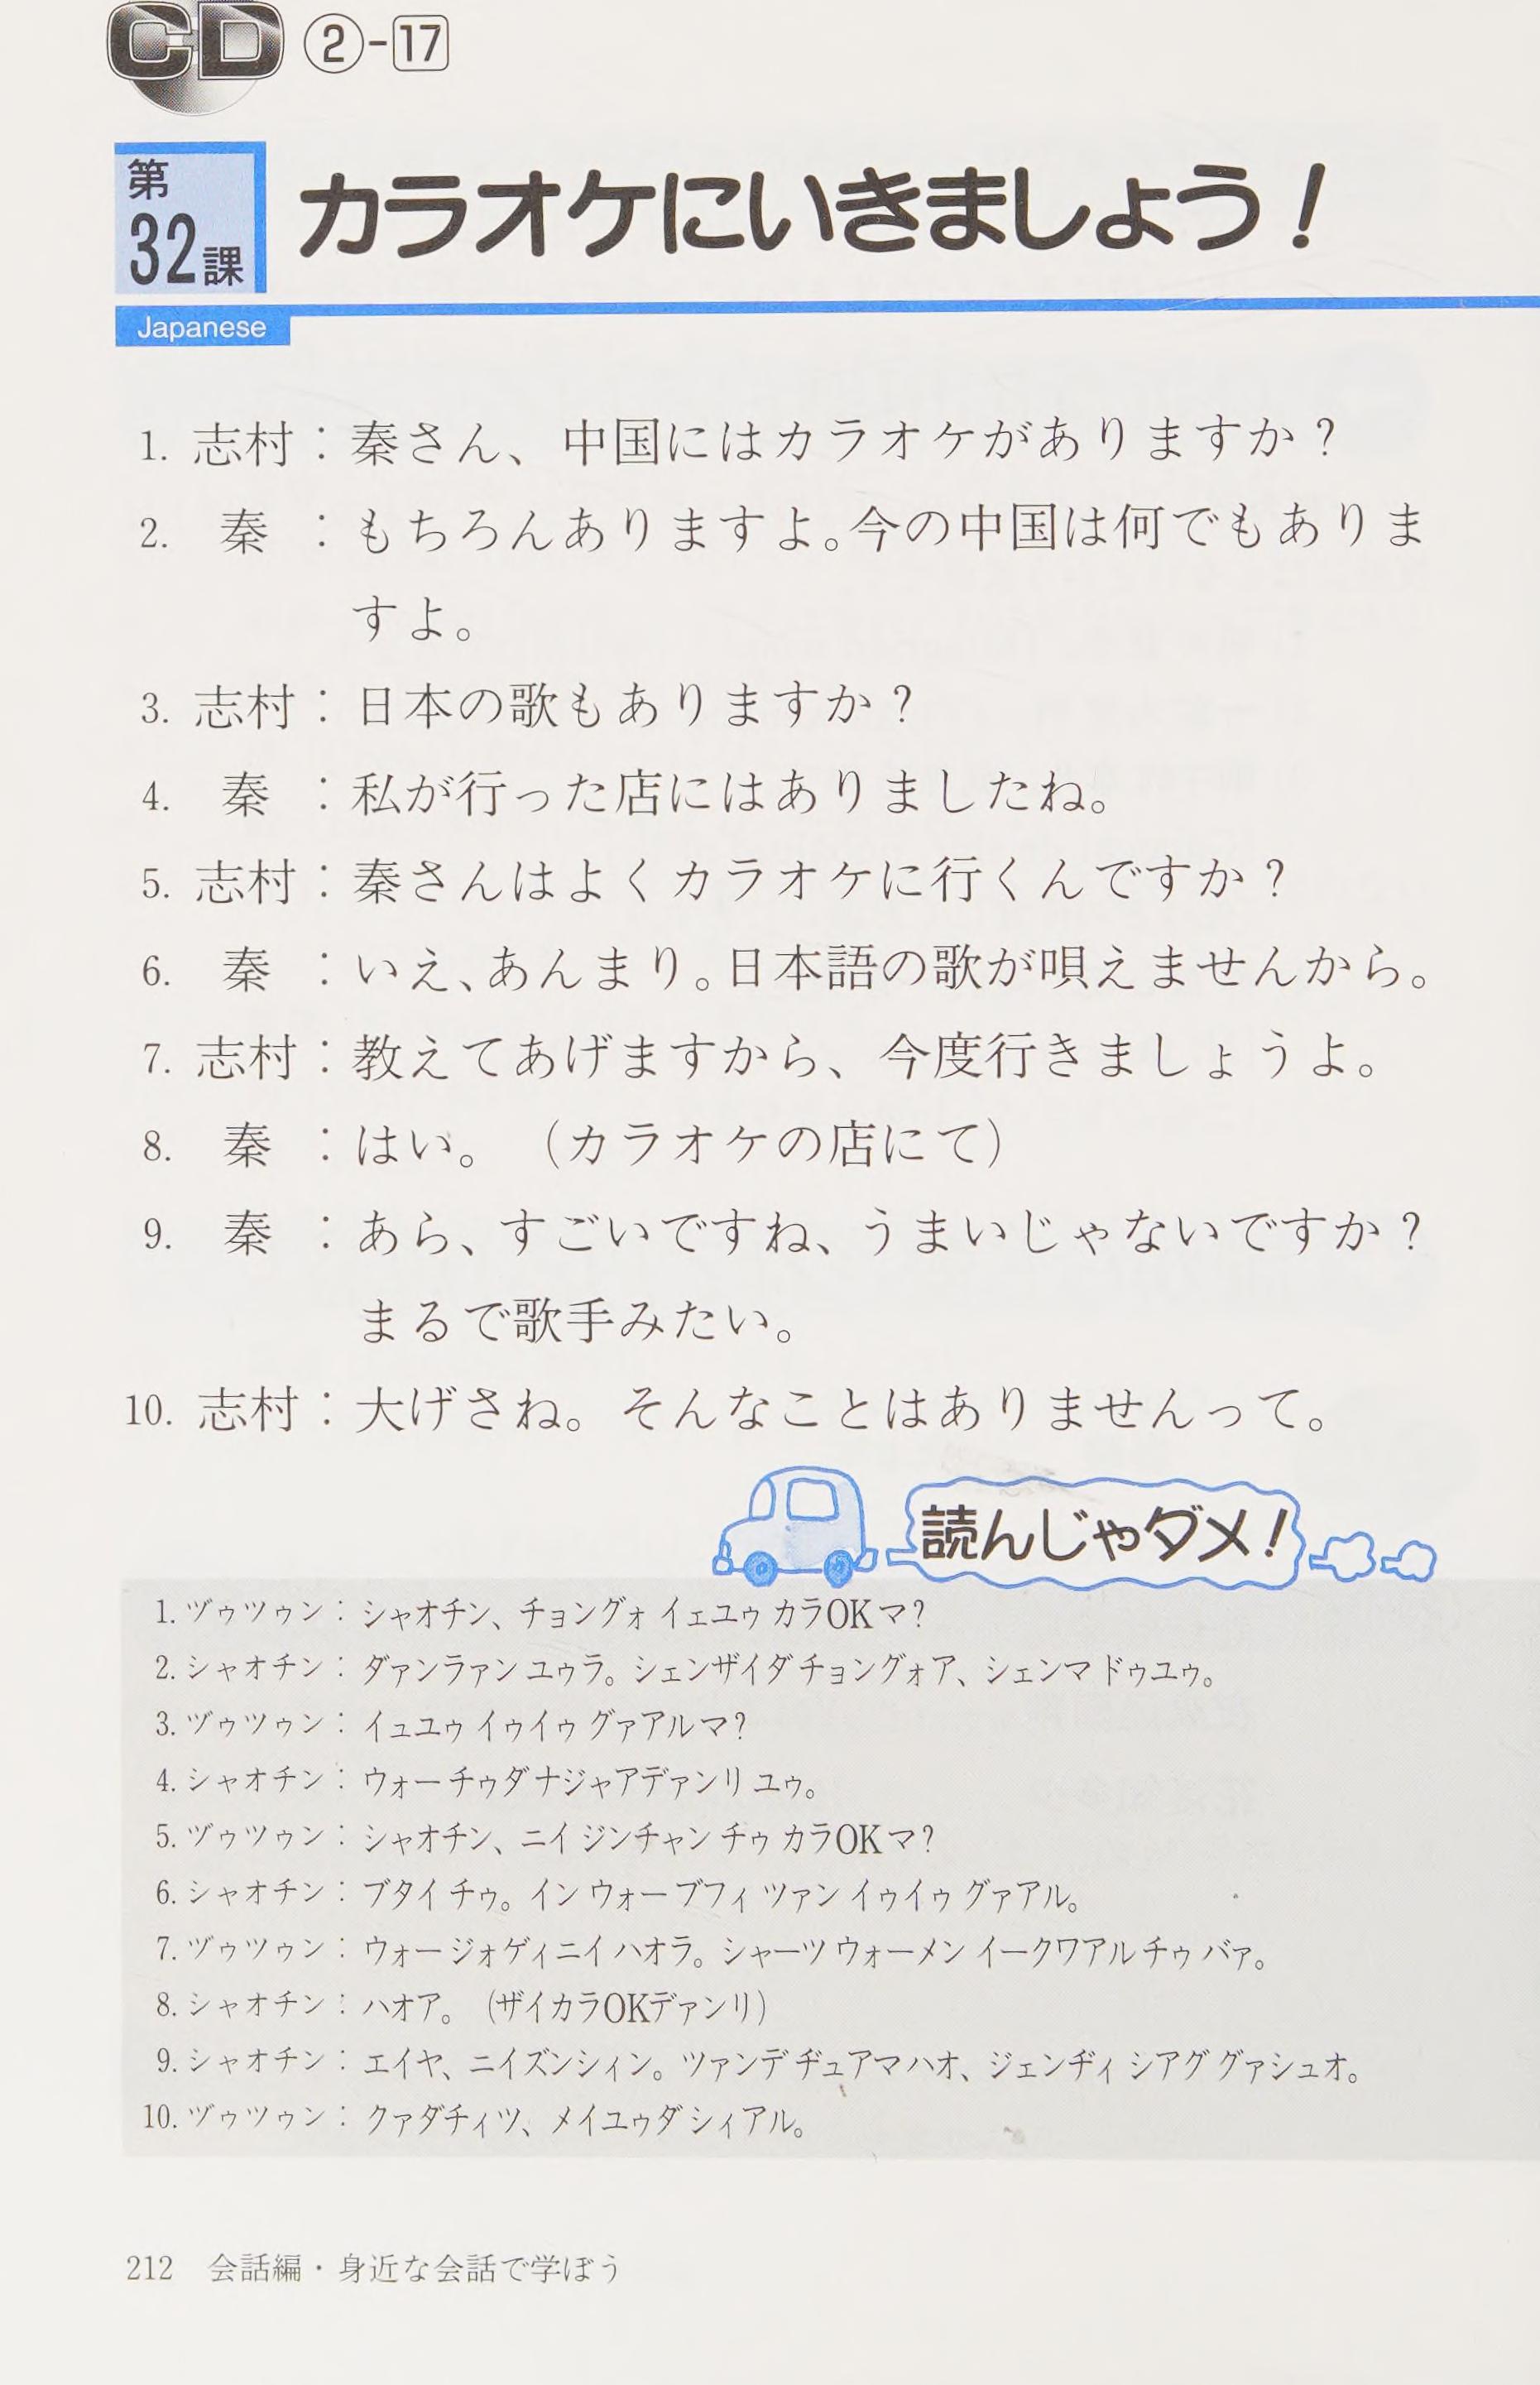 CD ②-17
第32課 カラオケにいきましょう！
Japanese
1. 志村：秦さん、中国にはカラオケがありますか？
2. 秦：もちろんありますよ。今の中国は何でもありま
すよ。
3. 志村：日本の歌もありますか？
4. 秦：私が行った店にはありましたね。
5. 志村：秦さんはよくカラオケに行くんですか？
6. 秦：いえ、あんまり。日本語の歌が唄えませんから。
7. 志村：教えてあげますから、今度行きましょうよ。
8. 秦：はい。（カラオケの店にて）
9. 秦：あら、すごいですね、うまいじゃないですか？
まるで歌手みたい。
10. 志村：大げさね。そんなことはありませんって。
読んじゃダメ！
1. ヅゥツゥン：シャオチン、チョングォ イェユゥ カラOKマ？
2. シャオチン：ダァンラァン ユゥラ。シェンザイダ チョングォア、シェンマ ドゥユゥ。
3. ヅゥツゥン：イュユゥ イゥイゥ グァアルマ？
4. シャオチン：ウォー チゥダ ナジャアデァンリ ユゥ。
5. ヅゥツゥン：シャオチン、ニイ ジンチャン チゥ カラOKマ？
6. シャオチン：ブタイ チゥ。イン ウォー ブフィ ツァン イゥイゥ グァアル。
7. ヅゥツゥン：ウォー ジォゲィニイ ハオラ。シャーツ ウォーメン イークワアル チゥ バァ。
8. シャオチン：ハオア。（ザイカラOKデァンリ）
9. シャオチン：エイヤ、ニイズンシィン。ツァンデ ヂュアマハオ、ジェンヂィ シアグ グァシュオ。
10. ヅゥツゥン：クァダチィツ、メイユゥダ シィアル。
212 会話編・身近な会話で学ぼう